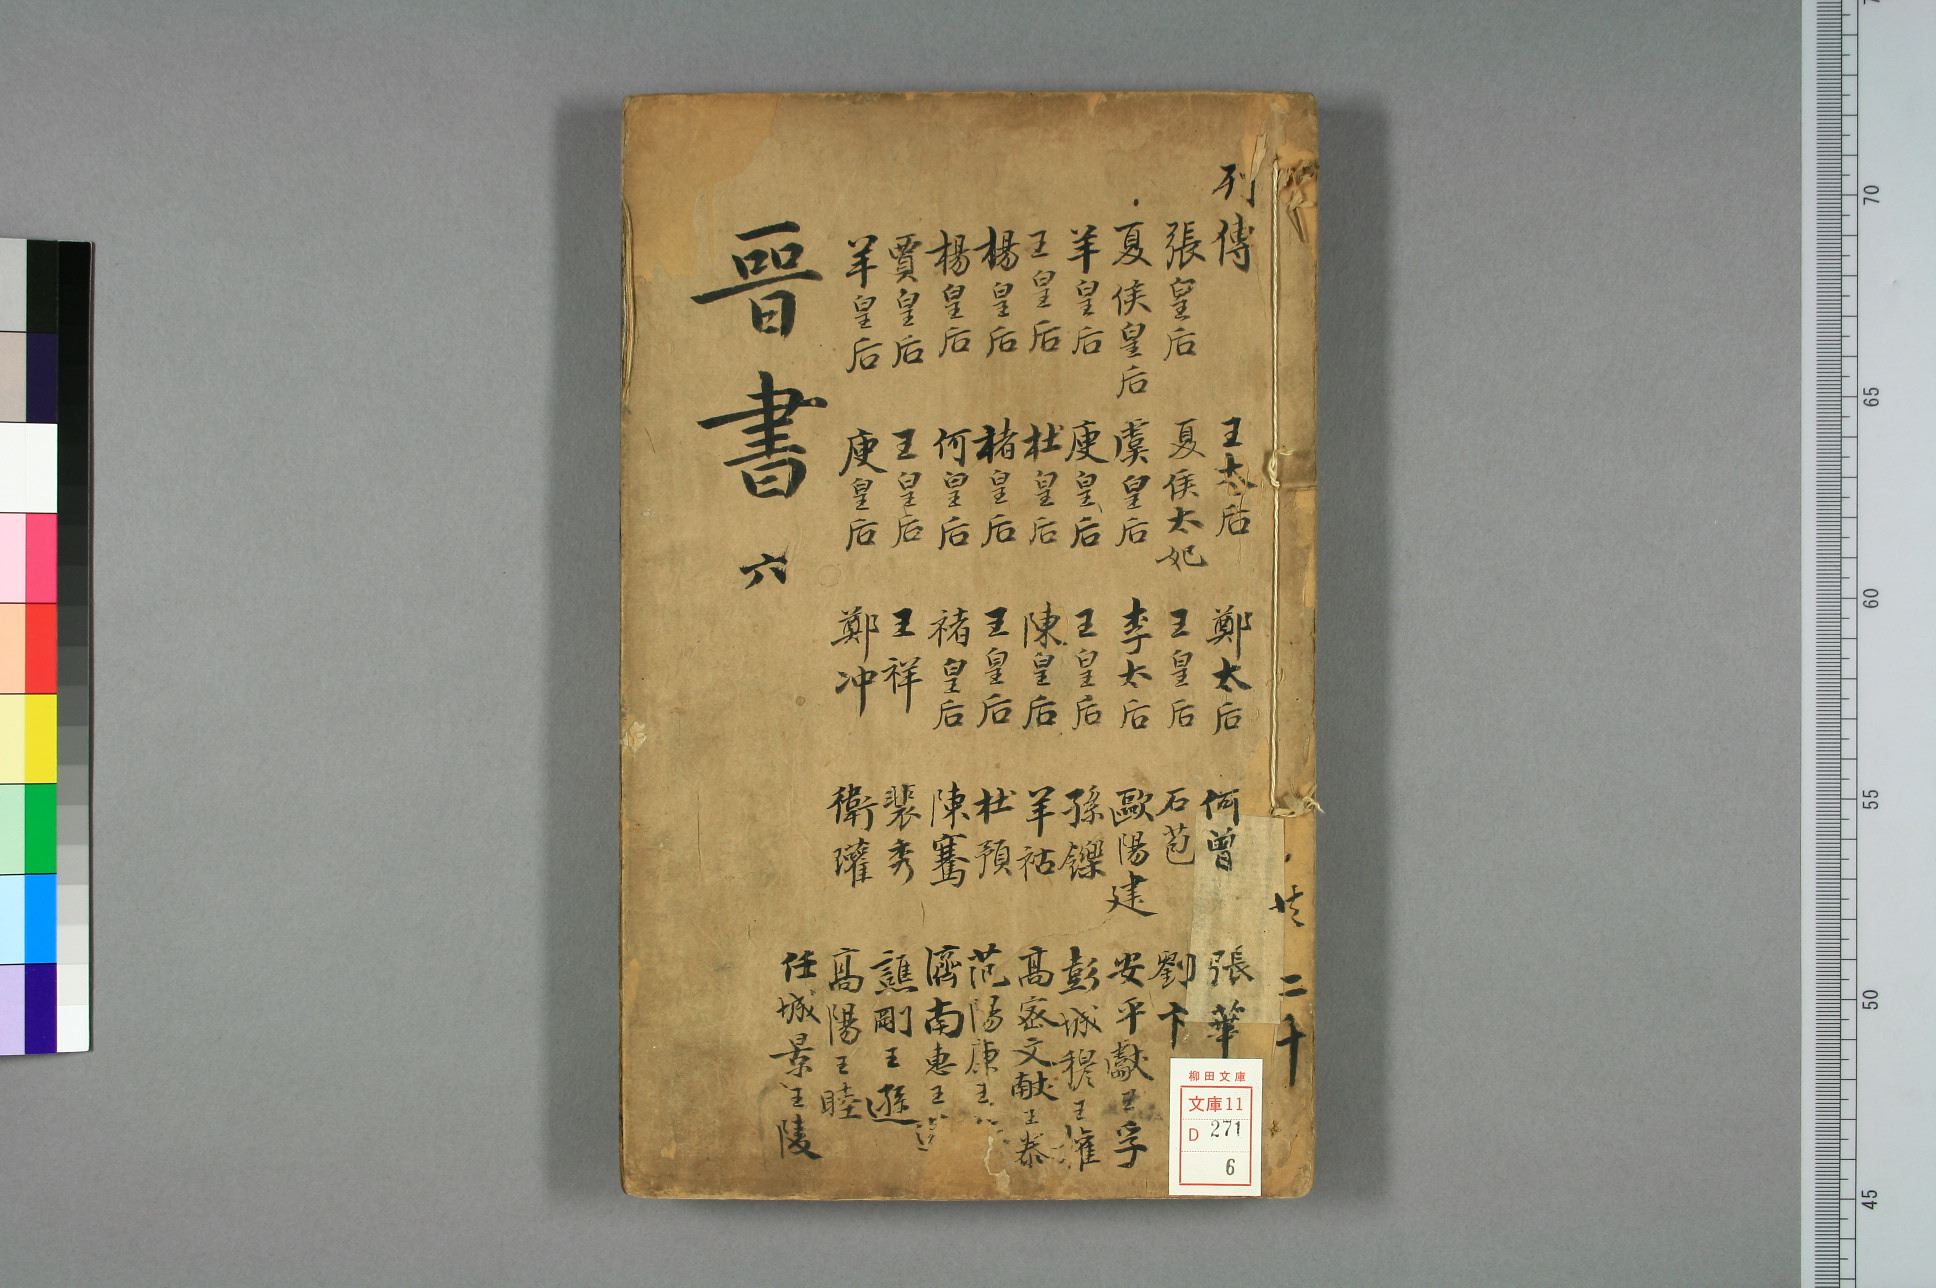 共 二十
列傳
張皇后
夏侯皇后
羊皇后
王皇后
楊皇后
楊皇后
賈皇后
羊皇后
王太后
夏侯太妃
虞皇后
庾皇后
杜皇后
褚皇后
何皇后
王皇后
庾皇后
鄭太后
王皇后
李太后
王皇后
陳皇后
王皇后
褚皇后
王祥
鄭冲
何曾
石苞
歐陽建
孫鑠
羊祜
杜預
陳騫
裴秀
衛瓘
張華
劉卞
安平獻王孚
彭城穆王權
高密文献王泰
范陽康王
濟南惠王
譙剛王遜
高陽王睦
任城景王陵
晉書 六
柳田文庫
文庫11
D 271
6
70
65
60
55
50
45